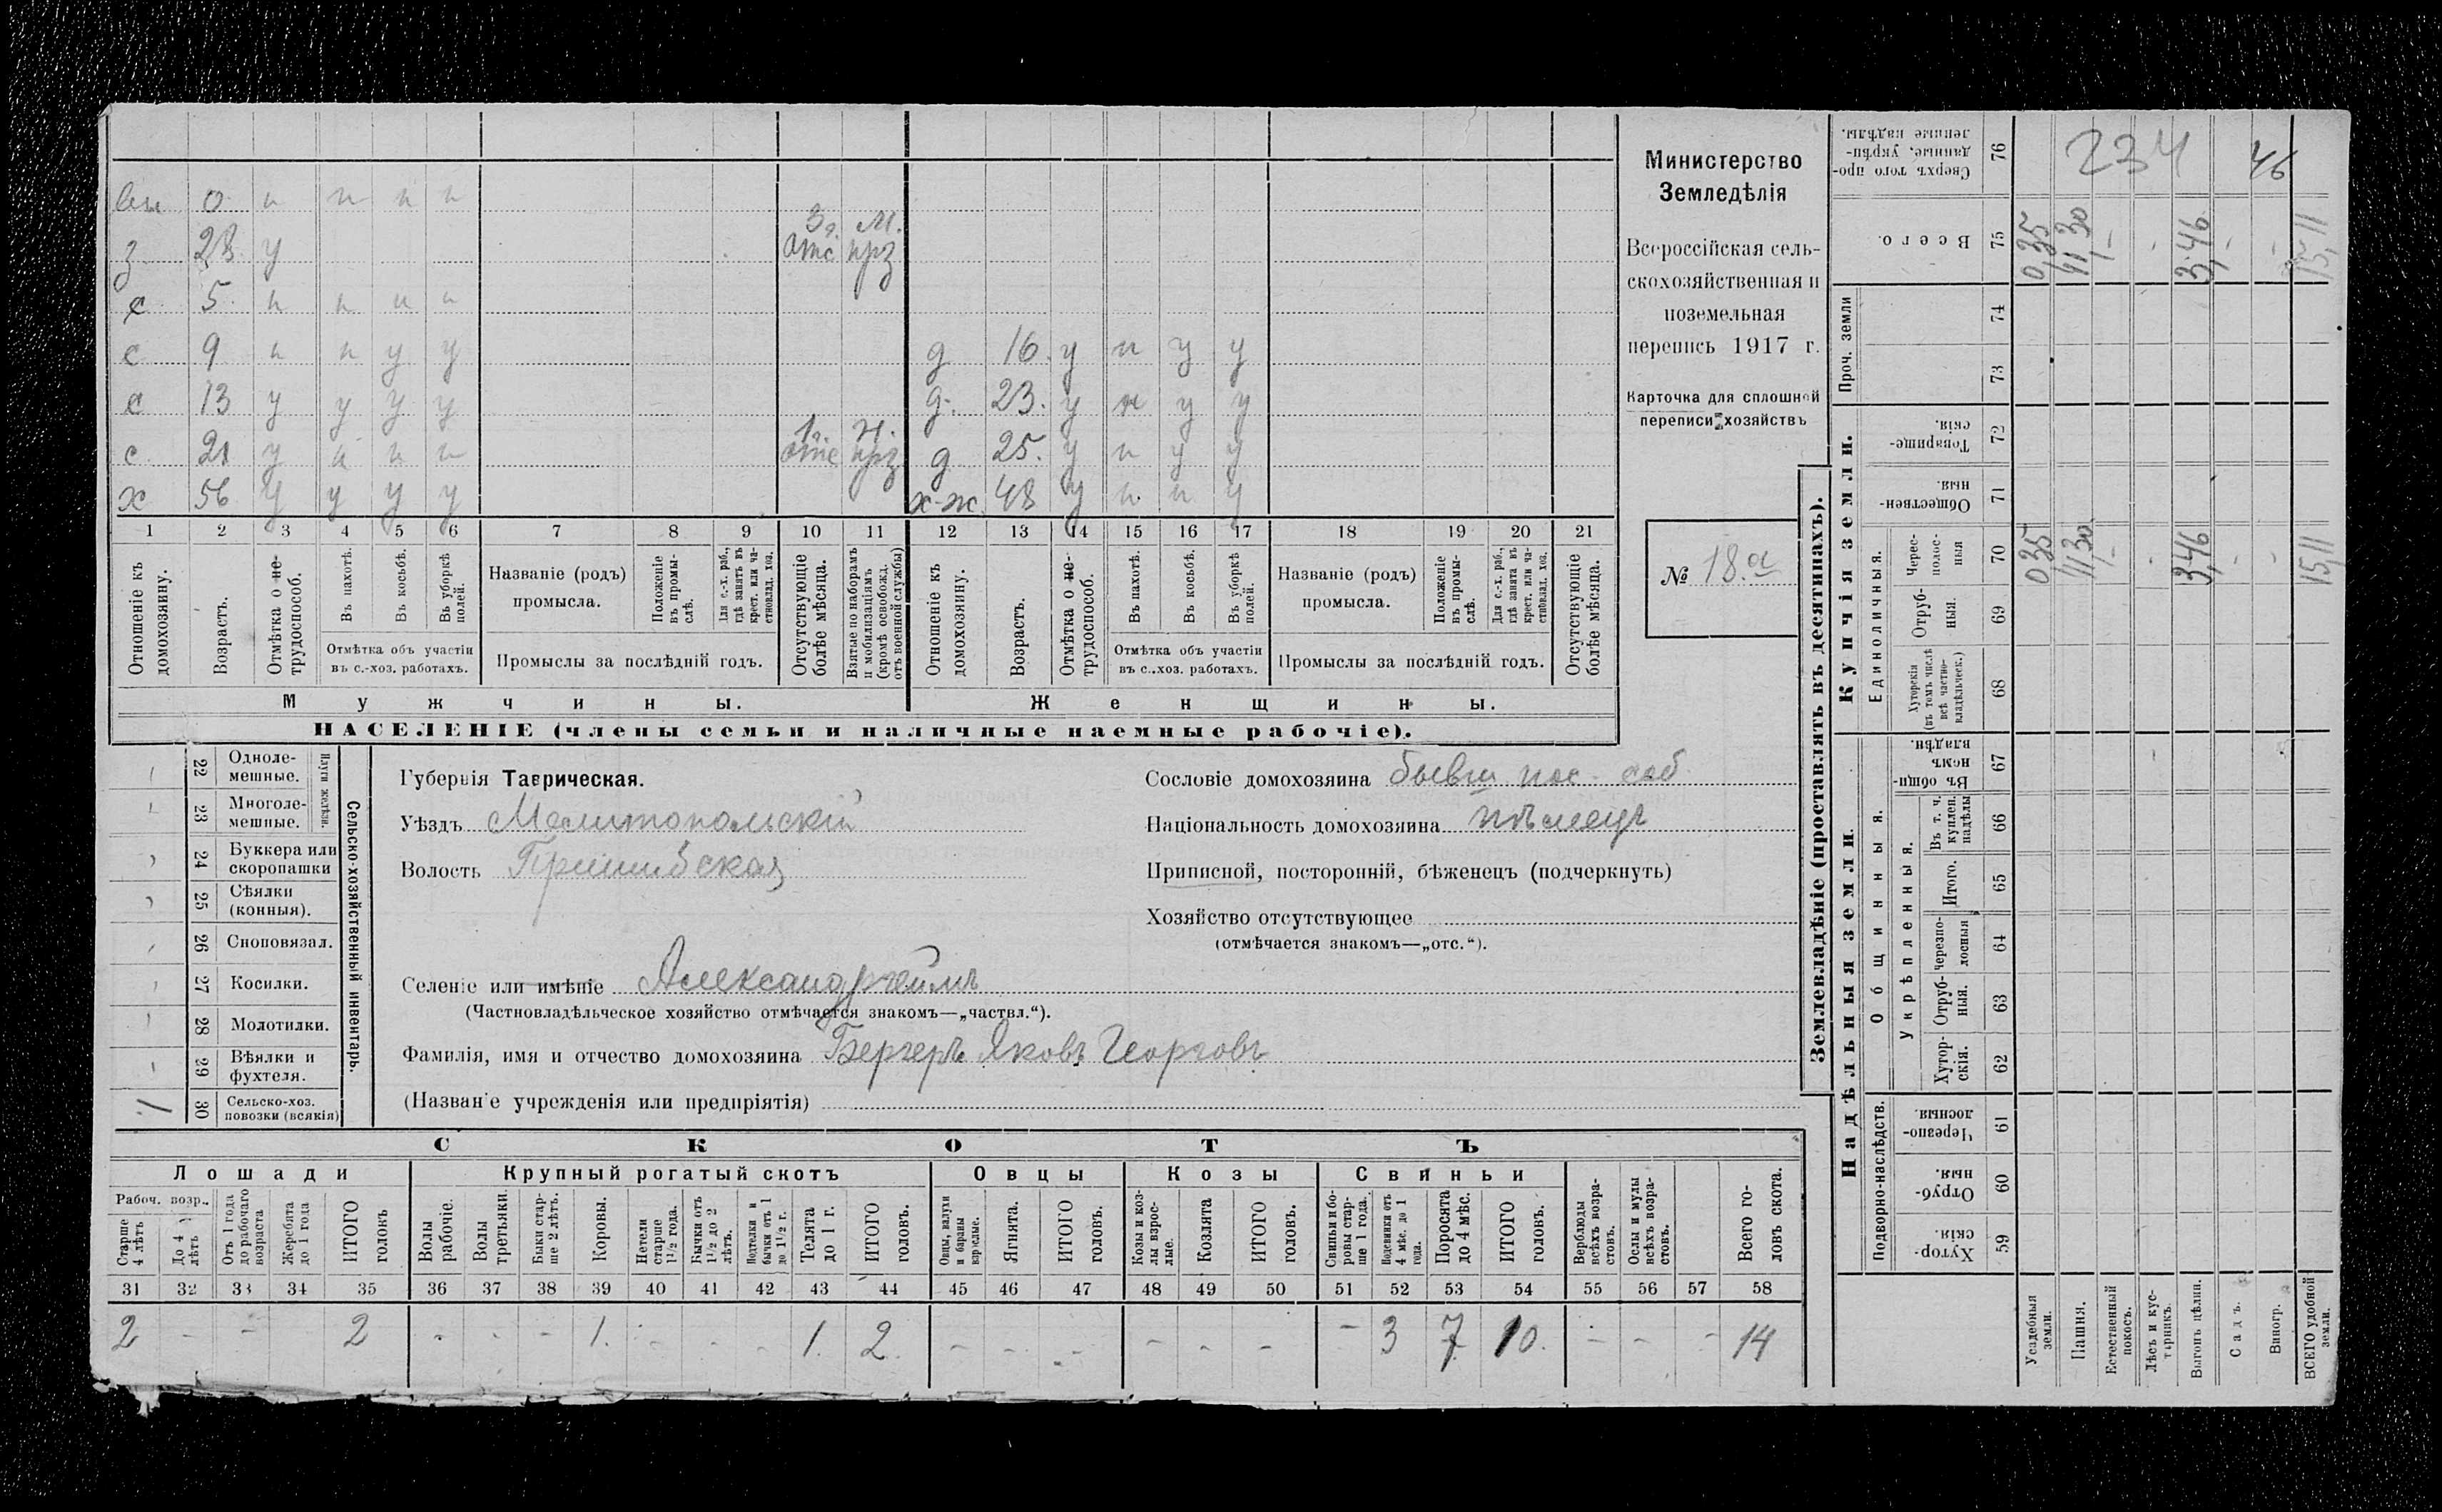 вн 0 н н н н
з 28 у 3 г. отс М. прз
с 5 н н н н
с 9 н н у у д 16 у н у у
с 13 у у у у д. 23. у н у у
с 21 у н н н 1 г. отс Н. прз д 25. у н у у
х 56 у у у у х-ж. 48 у н н у
1 2 3 4 5 6 7 8 9 10 11 12 13 14 15 16 17 18 19 20 21
Отношеніе къ домохозяину.
Возрастъ.
Отмѣтка о не-трудоспособ.
Въ пахотѣ.
Въ косьбѣ.
Въ уборкѣ полей.
Отмѣтка объ участіи въ с.-хоз. работахъ.
Названіе (родъ) промысла.
Положеніе въ промы-слѣ.
Для с.-х. раб., гдѣ занятъ въ крест. или ча-стновлад. хоз.
Промыслы за послѣдній годъ.
Отсутствующіе болѣе мѣсяца.
Взятые по наборамъ и мобилизаціямъ (кромѣ освобожд. отъ военной службы)
Отношеніе къ домохозяину.
Возрастъ.
Отмѣтка о не-трудоспособ.
Въ пахотѣ.
Въ косьбѣ.
Въ уборкѣ полей.
Отмѣтка объ участіи въ с.-хоз. работахъ.
Названіе (родъ) промысла.
Положеніе въ промы-слѣ.
Для с.-х. раб., гдѣ занята въ крест. или ча-стновлад. хоз.
Промыслы за послѣдній годъ.
Отсутствующіе болѣе мѣсяца.
Мужчины. Женщины.
НАСЕЛЕНІЕ (члены семьи и наличные наемные рабочіе).
Министерство
Земледѣлія
Всероссійская сель-
скохозяйственная и
поземельная
перепись 1917 г.
Карточка для сплошной
переписи хозяйствъ
№ 18.а
22 Одноле-мешные.
23 Многоле-мешные.
Плуги желѣзн.
24 Буккера или скоропашки
25 Сѣялки (конныя).
26 Сноповязал.
27 Косилки.
28 Молотилки.
29 Вѣялки и фухтеля.
30 Сельско-хоз. повозки (всякія) 1
Сельско-хозяйственный инвентарь.
Губернія Таврическая.
Уѣздъ Мелитопольскій
Волость Пришибская
Сословіе домохозяина бывш пос. соб
Національность домохозяина нѣмецъ
Приписной, посторонній, бѣженецъ (подчеркнуть)
Хозяйство отсутствующее
(отмѣчается знакомъ—„отс.“).
Селеніе или имѣніе Александргеймъ
(Частновладѣльческое хозяйство отмѣчается знакомъ—„частвл.“).
Фамилія, имя и отчество домохозяина Бергеръ Яковъ Георговъ
(Названіе учрежденія или предпріятія)
СКОТЪ
Лошади Крупный рогатый скотъ Овцы Козы Свиньи
Рабоч. возр.
Старше 4 лѣтъ
До 4 лѣтъ
Отъ 1 года до рабочаго возраста
Жеребята до 1 года
ИТОГО головъ
Волы рабочіе.
Волы третьяки.
Быки стар-ше 2 лѣтъ.
Коровы.
Нетели старше 1½ года.
Бычки отъ 1½ до 2 лѣтъ.
Подтелки и бычки отъ 1 до 1½ г.
Телята до 1 г.
ИТОГО головъ.
Овцы, валухи и бараны взрослые.
Ягнята.
ИТОГО головъ.
Козы и коз-лы взрос-лые.
Козлята
ИТОГО головъ.
Свиньи и бо-ровы стар-ше 1 года.
Подсвинки отъ 4 мѣс. до 1 года.
Поросята до 4 мѣс.
ИТОГО головъ.
Верблюды всѣхъ возра-стовъ.
Ослы и мулы всѣхъ возра-стовъ.
Всего го-ловъ скота.
31 32 33 34 35 36 37 38 39 40 41 42 43 44 45 46 47 48 49 50 51 52 53 54 55 56 57 58
2 - - 2 - - - 1. - - - 1. 2 - - - - - - - 3 7 10. - - - 14
Землевладѣніе (проставлять въ десятинахъ).
Купчія земли.
Надѣльныя земли.
Сверхъ того про-данные, укрѣп-ленные надѣлы. 76 234 46
Всего. 75 0,35 11,30 - - 3,46 - - 15,11
Проч. земли
74
73
Товарище-скія. 72
Обществен-ныя. 71
Единоличныя.
Черес-полос-ныя 70 0,35 11,30 - - 3,46 - - 15,11
Отруб-ныя. 69
Хуторскія (въ томъ числѣ всѣ частно-владѣльческ.) 68
Общинныя.
Въ общин-номъ владѣн. 67
Укрѣпленныя.
Въ т. ч. куплен. надѣлы 66
Итого. 65
Черезпо-лосныя 64
Отруб-ныя. 63
Хутор-скія. 62
Подворно-наслѣдств.
Черезпо-лосныя. 61
Отруб-ныя. 60
Хутор-скія. 59
Усадебныя земли.
Пашня.
Естественный покосъ.
Лѣсъ и кус-тарникъ.
Выгонъ цѣлин.
Садъ.
Виногр.
ВСЕГО удобной земли.